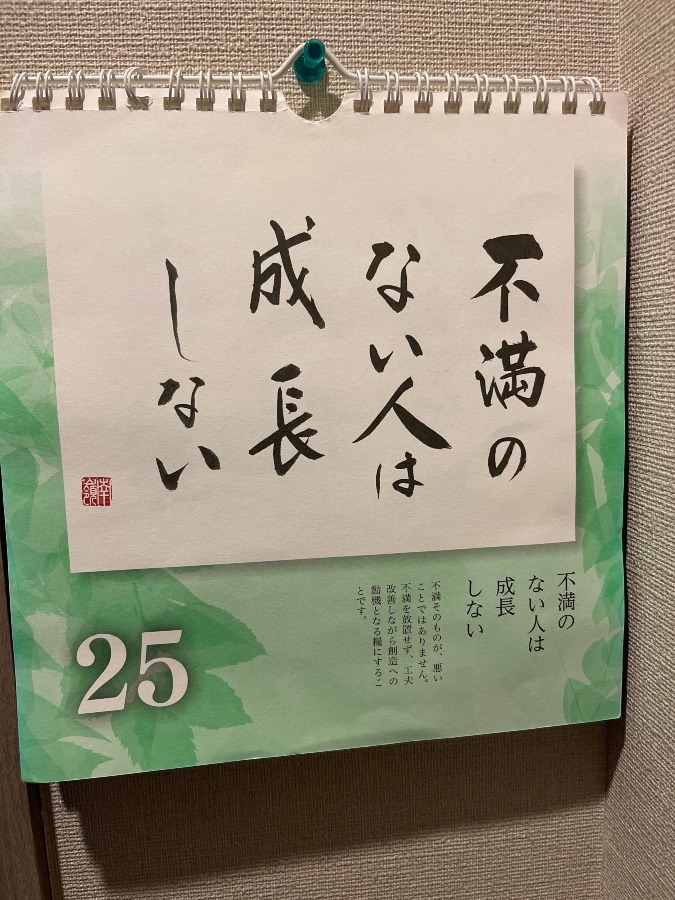 不満の
ない人は
成長
しない
不満の
ない人は
成長
しない
不満そのものが、悪い
ことではありません。
不満を放置せず、工夫
改善しながら創造への
動機となる糧にするこ
とです。
25